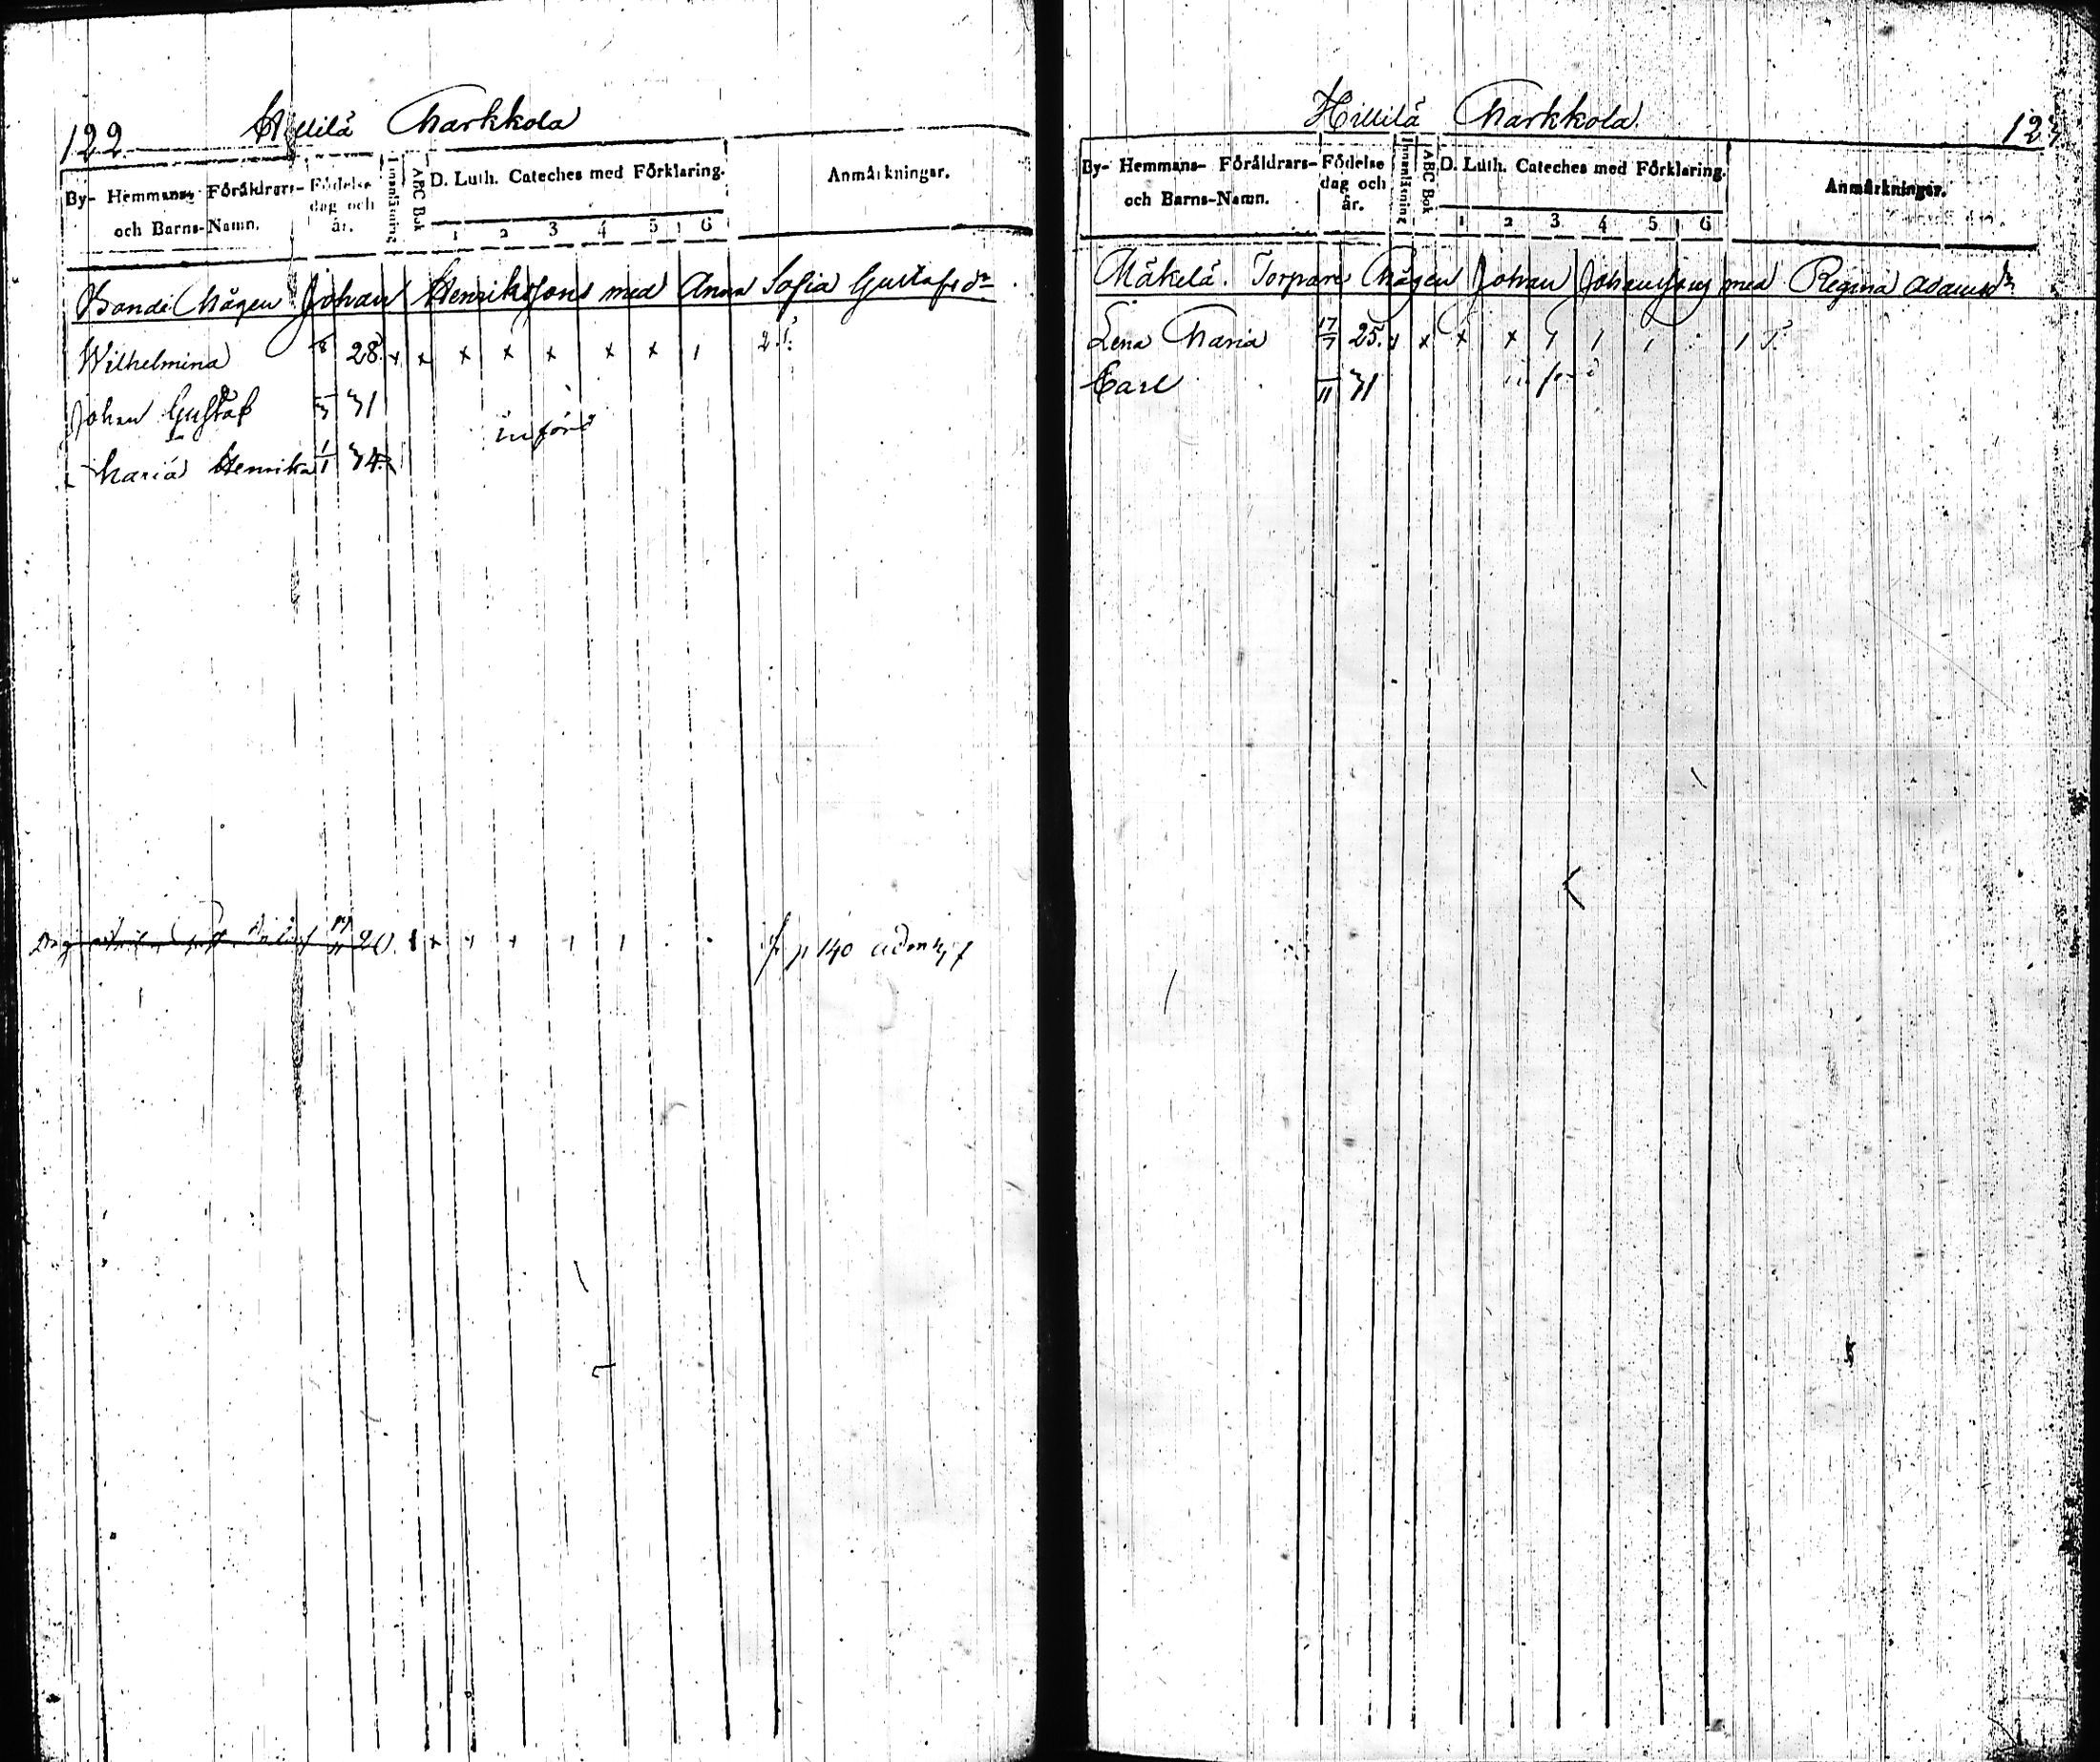 122.
Hillilä Markkola
By- Hemmans- Föräldrars-
och Barns-Namn.
Födelse
dag och
år.
Innanläsning
ABC Bok
D. Luth. Cateches med Förklaring.
1 2 3 4 5 6
Anmärkningar.
Bonde Mågen Johan Henriksson med Anna Sofia Gustafsdr
Wilhelmina 28. x x x x x x x 1
Johan Gustaf 31
införd
Maria Henrika 1/1 34
20. p 140
Hillilä Markkola.
123
By- Hemmans- Föräldrars-
och Barns-Namn.
Födelse
dag och
år.
Innanläsning
ABC Bok
D. Luth. Cateches med Förklaring.
1 2 3 4 5 6
Anmärkningar.
Mäkelä. Torpare Mågen Johan Johansson med Regina Adamsdr
Lena Maria 17/7 25. x x x x
Carl 31 införd